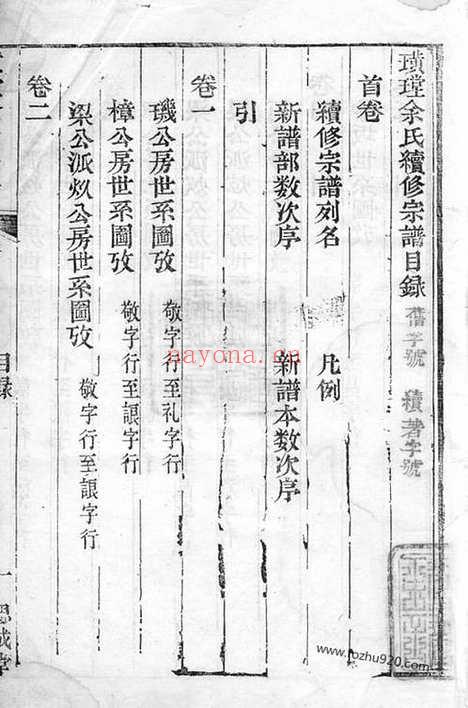 璜瑝余氏續修宗譜目録 舊字號 續著字號
首卷
續修宗譜列名 凡例
新譜部数次序 新譜本数次序
引
卷一
璣公房世系圖攷 敬字行至礼字行
樟公房世系圖攷 敬字行至詪字行
梁公派㷌公房世系圖攷 敬字行至詪字行
卷二
目録 一
nayona.cn
www.rozhu920.com